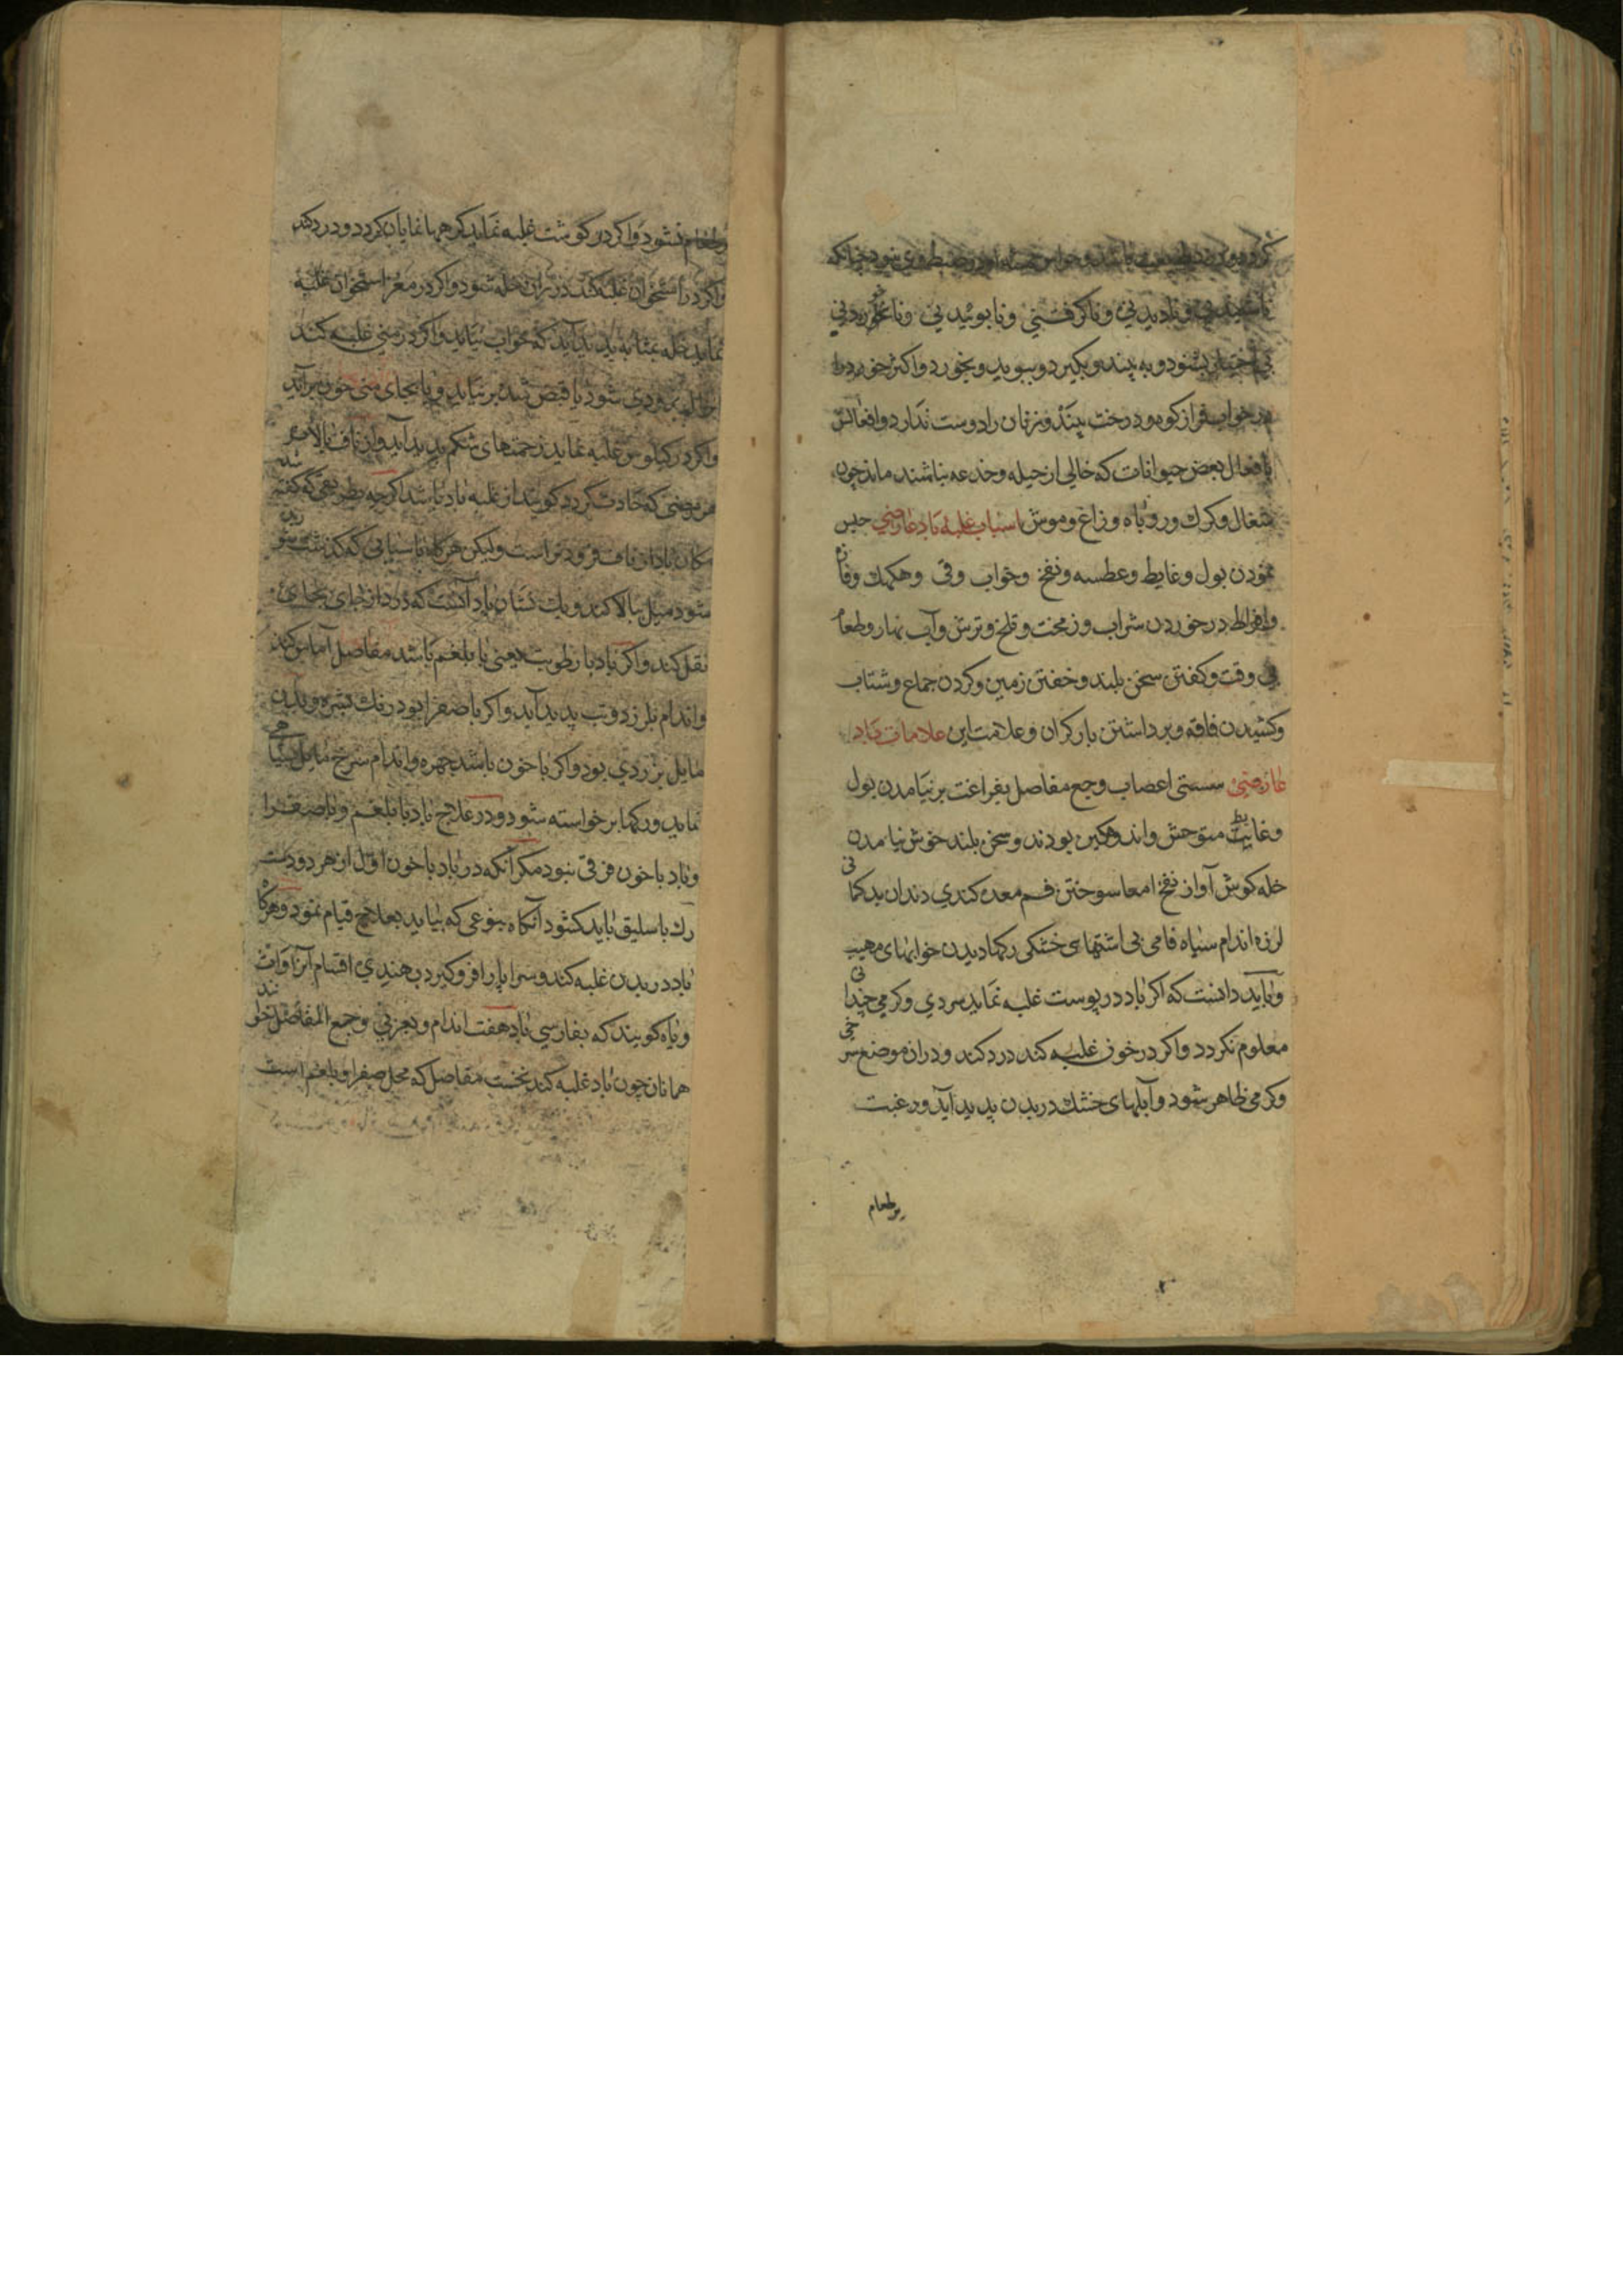 نادیدنی و ناکرفتنی و نابوئیدنی و ناخوردنی
بی اختیار بشنود و به بیند و بکیرد و ببوید و بخورد و اکثر خورد را
در خواب فراز کوه و درخت بیند و زنان را دوست ندارد و افعالش
بافعال بعض حیوانات که خالی از حیله و خدعه نباشند ماند چون
شغال و کرک و روباه و زاغ و موش اسباب غلبهٔ باد عارضی حبس
نمودن بول و غایط و عطسه و نفخ و خواب و قی و هکهک و فازه
و افراط در خوردن شراب و زمخت و تلخ و ترش و آب نهار و طعام
بی وقت و کفتن سخن بلند و خفتن زمین و کردن جماع و شتاب
و کشیدن فاقه و برداشتن بار کران و علامت این علامات باد
عارضی سستی اعصاب وجع مفاصل بفراغت برنیامدن بول
و غایط متوحش و اندوهکین بودند و سخن بلند خوش نیامدن
خله کوش آواز نفخ امعا سوختن فم معده کندی دندان بدکمانی
لرزه اندام سیاه فامی بی اشتهاسی خشکی رکها دیدن خوابهای مهیب
و باید دانست که اکر باد در پوست غلبه نماید سردی و کرمی چندانی
معلوم نکردد و اکر در خون غلبه کند درد کند و دران موضع سرخی
و کرمی ظاهر شود و آبلهای خشک در بدن پدید آید و رغبت
برطعام
بطعام نشود و اکر در کوشت غلبه نماید کرهها نمایان کردد و درد کند
و اکر در استخوان غلبه کند دران خله شود و اکر در مغز استخوان غلبه
نماید خله بمثابه پدید آید که خواب نیاید و اکر در منی غلبه کند
بزودی شود یا قبض شده برنیاید و یا بجای منی خون برآید
و اکر در کیلوس غلبه نماید زحمتهای شکم پدید آید و از ناف بالا
هر مرضی که حادث کردد کویند از غلبه باد باشد اکرچه بطریقی که کفته شد
مکان باد از ناف فرودتر است ولیکن هرکاه باسبابی که کذشت
شود میل ببالا کند و یک نشان باد آنست که درد از جای بجای
نقل کند و اکر باد با رطوبت یعنی با بلغم باشد مفاصل آماس کند
و اندام بلرزد و تب پدید آید و اکر با صفرا بود رنک بشره و بدن
مایل بزردی بود و اکر با خون باشد چهره و اندام سرخ مایل بسیاهی
نماید و رکها برخواسته شود و در علاج باد با بلغم و با صفرا
و باد با خون فرقی نبود مکر آنکه در باد با خون اول از هر دو دست
رک باسلیق باید کشود آنکاه بنوعی که بیاید بعلاج قیام نمود و هرکاه
باد در بدن غلبه کند و سراپا را فرو کیرد بهندی اقسام آنرا وات
و باه کویند که بفارسی باد هفت اندام و بعربی وجع المفاصل خوانند
همانان چون باد غلبه کند نخست مفاصل که محل صفرا و بلغم است